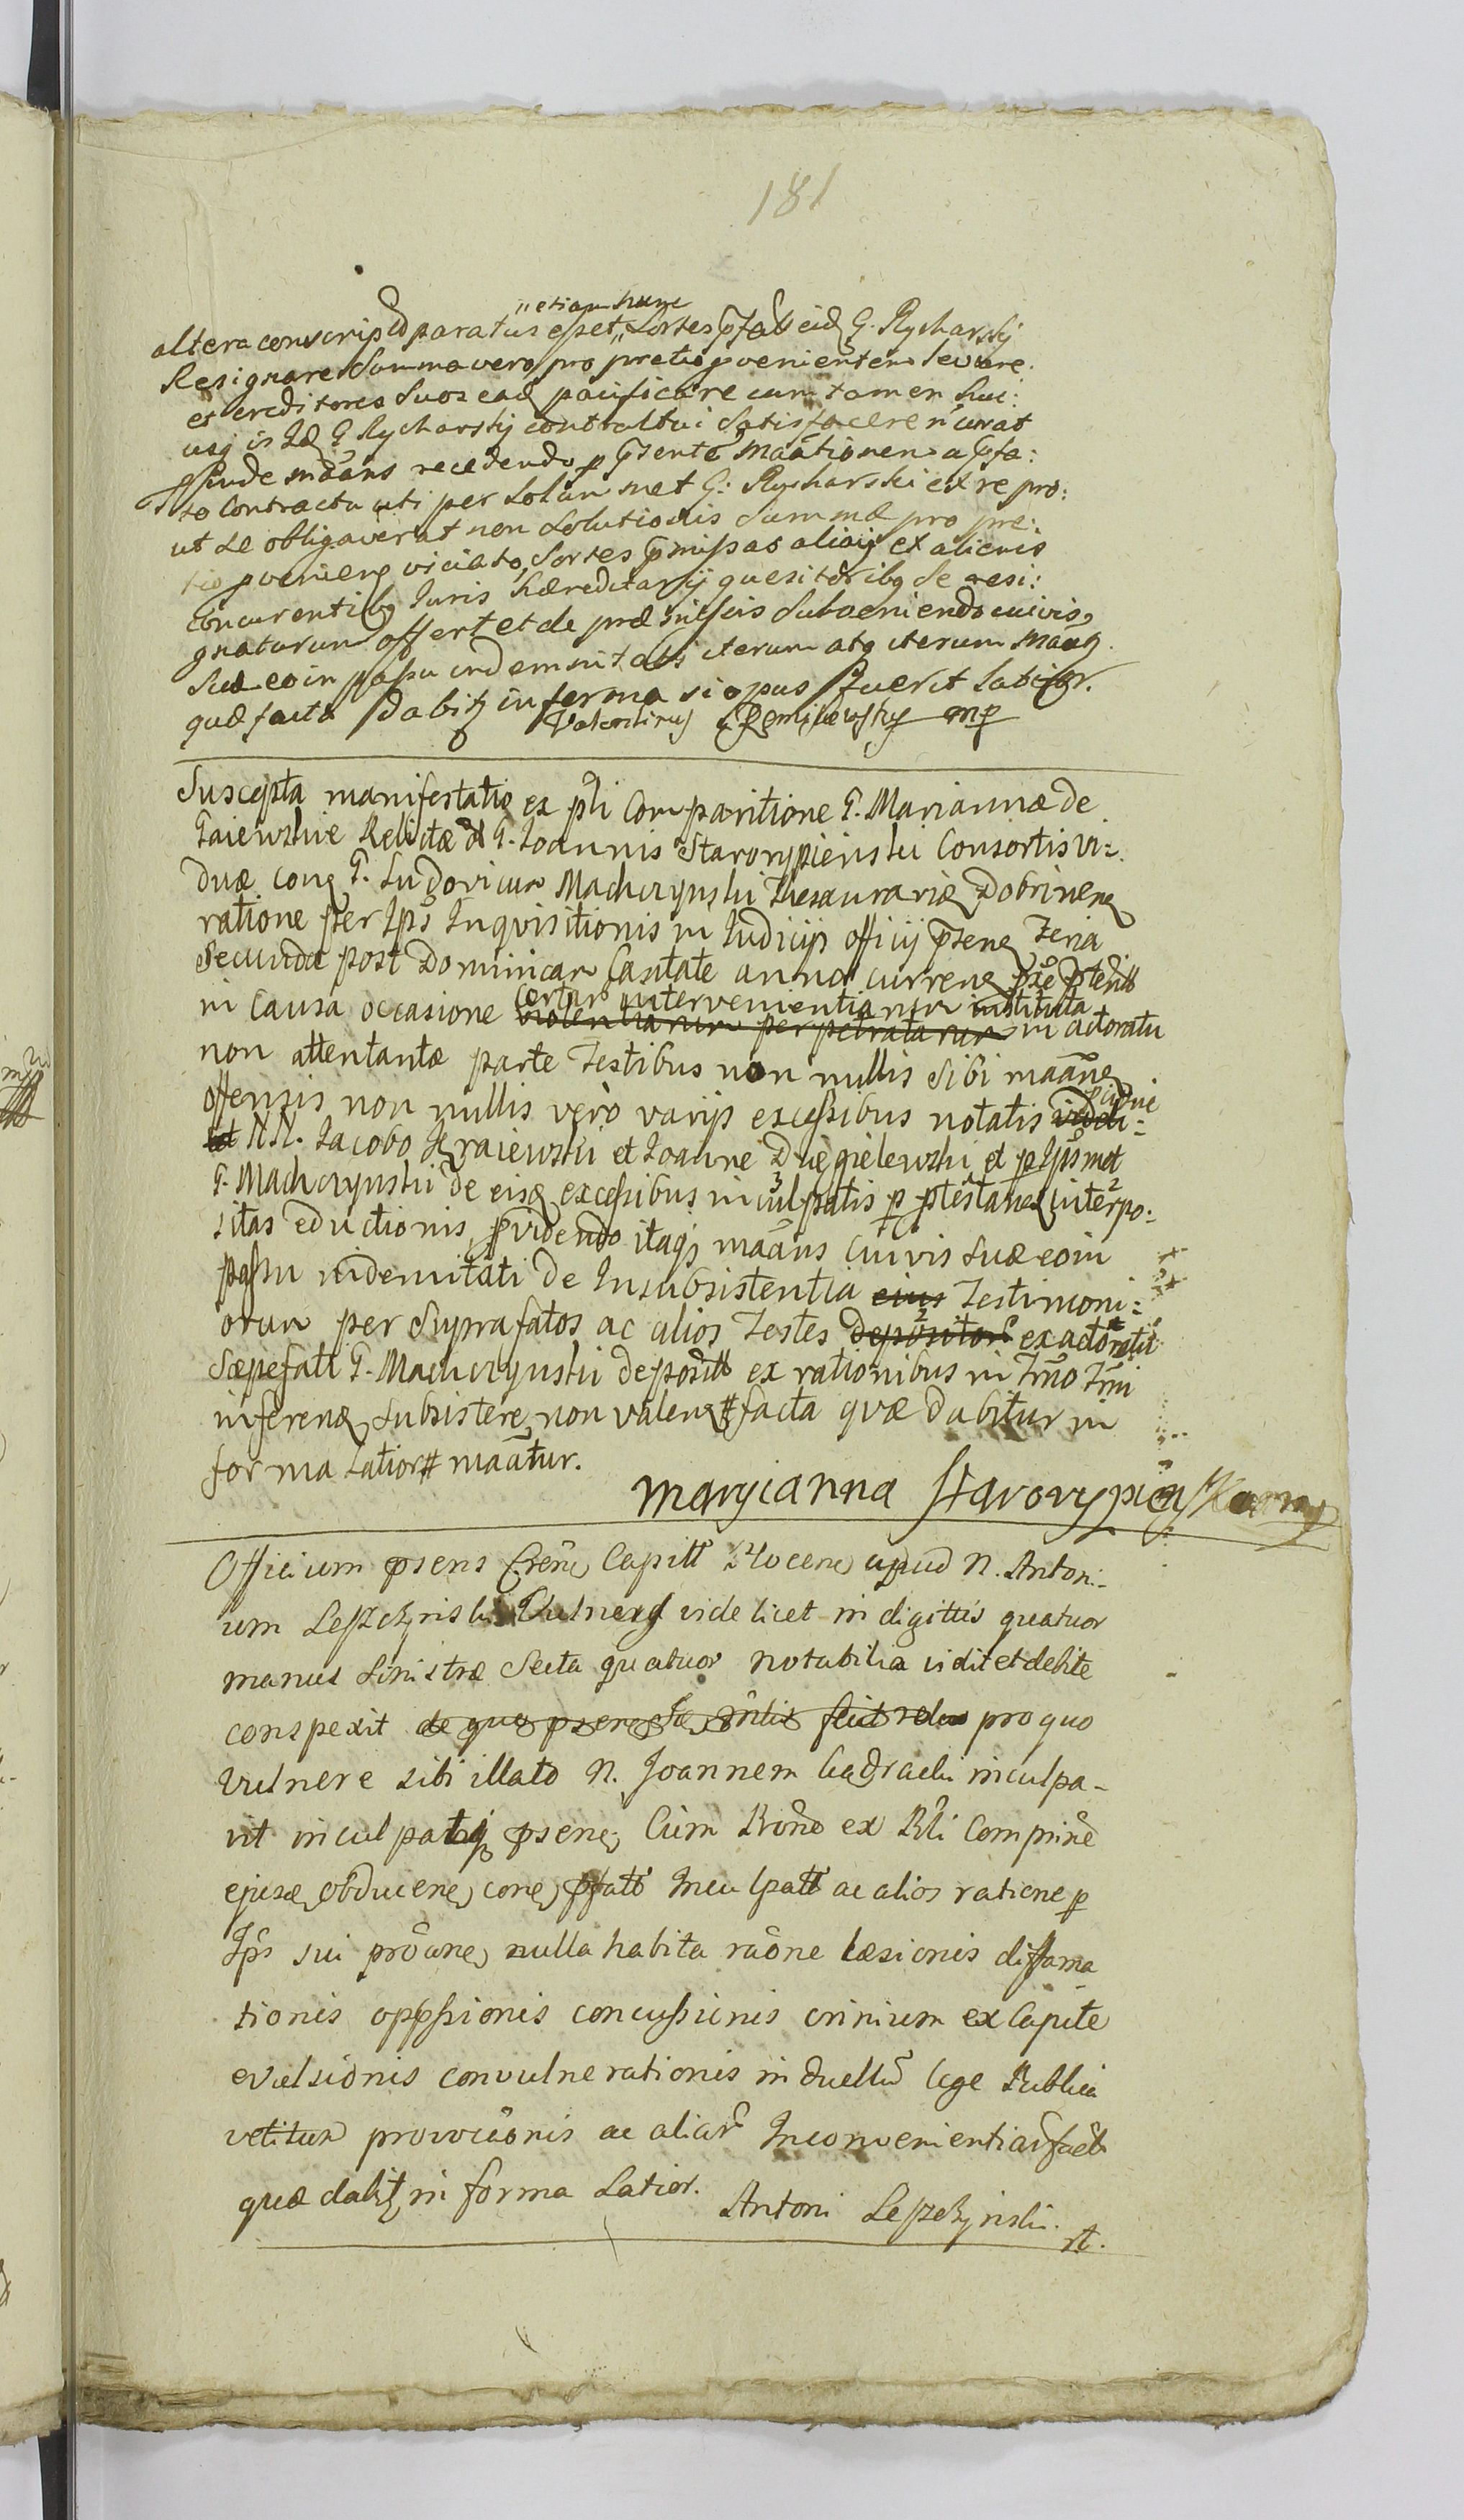 181
"etiam hunc
altera conscripto paratus esset " Sortes pfatt eid G. Rycharskij
Resignare Summa vero pro pretio pvenientem levare.
et creditores suos ead pacificare cum tamen huc:
usq is Id G Rycharskij contractui Satisfacere n curat
Proinde mãans recedendo p pſentẽ Maãtionem a pfa:
to Contractu uti per Solum met G: Rycharski ex re pro:
ut se obligaverat non Solutionis Summæ pro pre:
tio pveniene viciato, Sortes pmissas aliaq ex alienis
concurentibq Juris hæreditarij quesitoribq Se resi:
gnaturum offert et de præmissis Subveniendo cuivis,
Suæ eo in passu indemnitati iterum atq iterum Maãt.
quæ facta dabitz in forma si opus fuerit latior.
Valentinus mp
Suscepta manifestatio ex pli Comparitione G. Mariannæ de
Gaiewskie Relictæ G. Joannis Starorypienski Consortis Vi:
duæ cone G. Ludovicum Machczynski Thesaurariæ Dobrinene
ratione per Ips Inquisitionis in Judicijs officij pſene Feria
Secunda post Dominicam Cantate anno currene
certar intervenientiarum instituta
in Causa occasione violentiarum perpetratarum in actoratu
non attentantæ parte Testibus non nullis Sibi maãne
offensis non nullis verò varijs excessibus notatis
N.N. Jacobo Kraiewski et Joanne et p Ipsmet
G. Machczynski de eisq excessibus inculpatis p interpo:
sitas eductionis, pvidendo itaq maãns Cuivis Suæ eo in
passu indemnitati de Insubsistentia eius Testimoni:
orum per Suprafatos ac alios Testes depositor ex actoratu
Sæpefati G. Machczynski depositt ex rationibus in Trno Trni
inferene Subsistere non valene # facta quæ dabitur in
forma latior # maãtur.
Maryianna Starorypienska mp
Officium pſens Crene Capitt Plocene apud N. Antoni-
um Leszczynski Vulnera videlicet in digittis quatuor
manus Sinistræ Secta quatuor notabilia vidit et debite
conspexit pro quo
Vulnere sibi illato N. Joannem inculpa-
vit inculpatq psene, Cum Bono ex Pli Compnne
ejusd obducene, cone, pfatt Inculpatt ac alios ratione p
Ips sui nulla habita raõne læsionis diffama
tionis oppssionis concussionis crinium ex Capite
evulsionis convulnerationis in duellũ lege Publica
vetitum provocãonis ac aliar Inconvenientiar fact
quæ dabitz in forma Latior. Antoni Leszczynski.